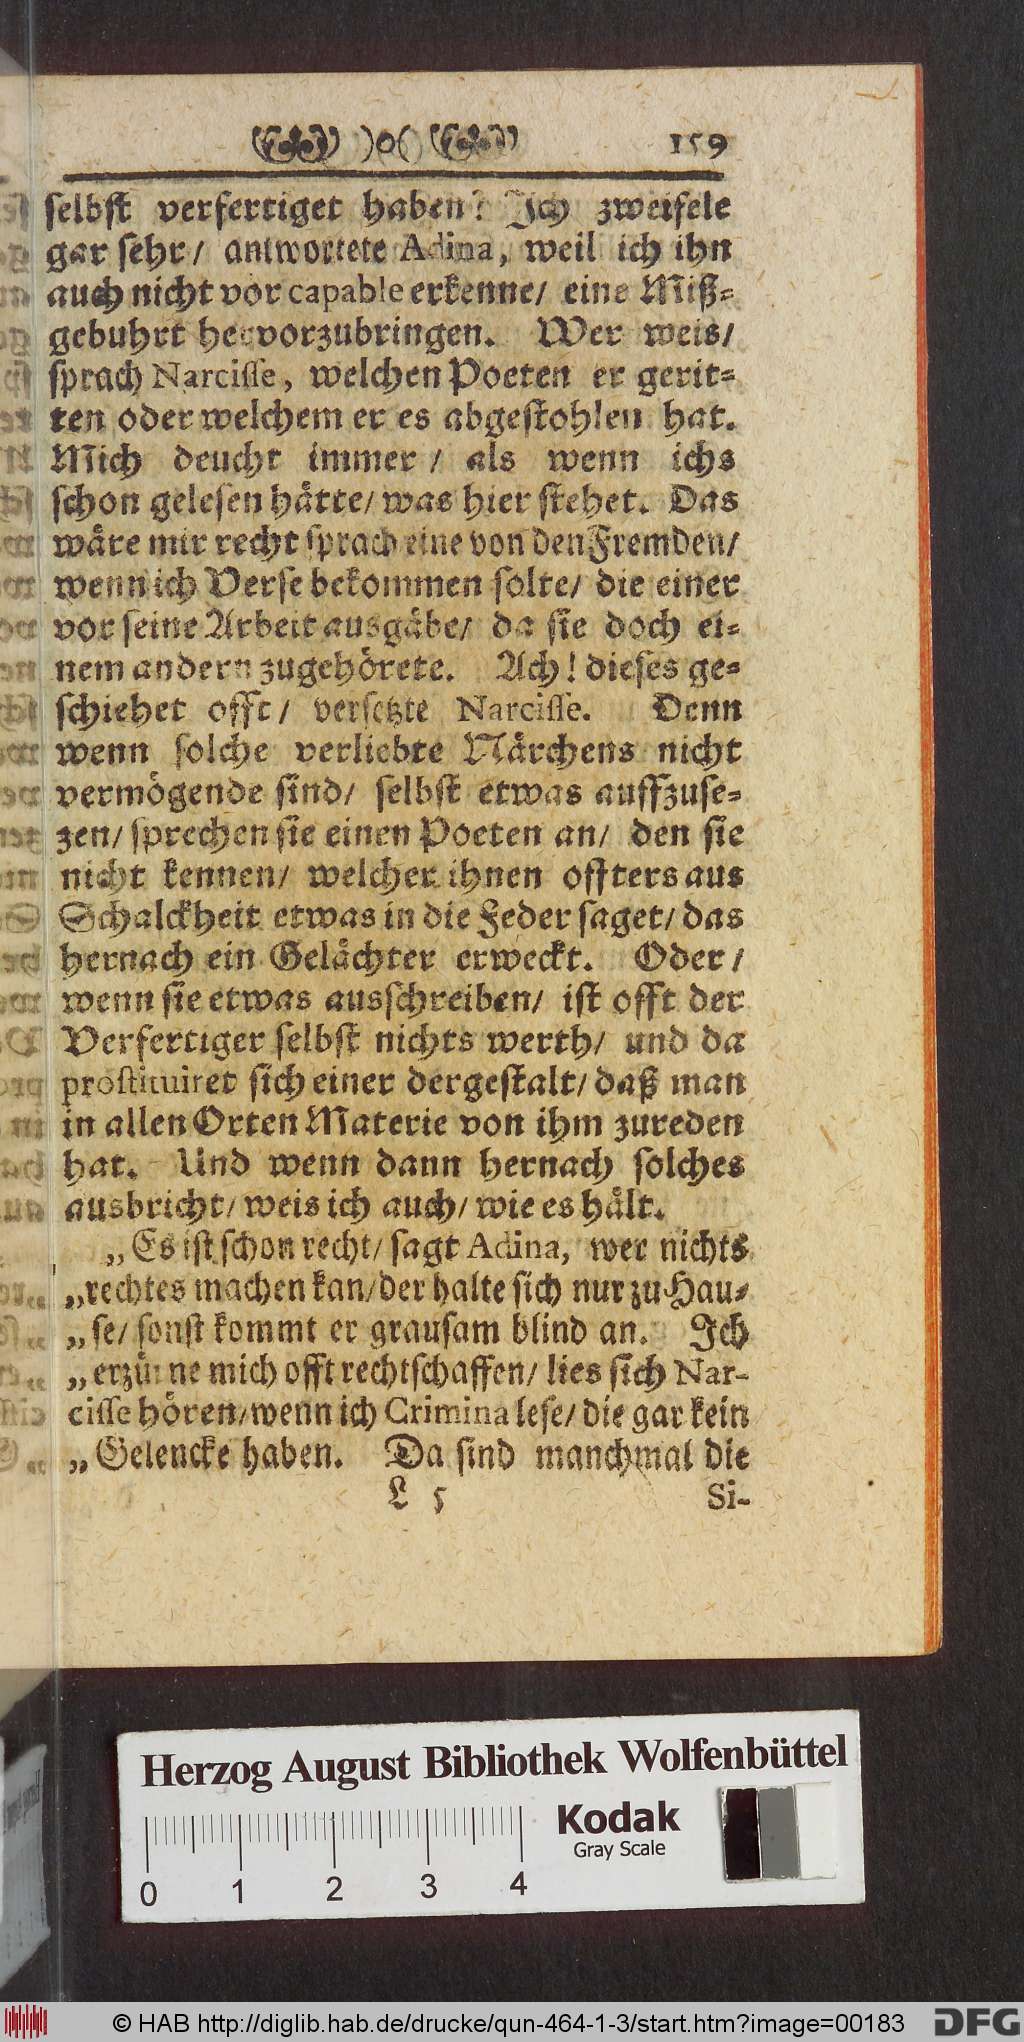 )o( 159
selbst verfertiget haben? Ich zweifele
gar sehr/ antwortete Adina, weil ich ihn
auch nicht vor capable erkenne/ eine Miß=
gebuhrt hervorzubringen. Wer weis/
sprach Narcisse, welchen Poeten er gerit=
ten oder welchem er es abgestohlen hat.
Mich deucht immer/ als wenn ichs
schon gelesen hätte/ was hier stehet. Das
wäre mir recht sprach eine von den Fremden/
wenn ich Verse bekommen solte/ die einer
vor seine Arbeit ausgäbe/ da sie doch ei=
nem andern zugehörete. Ach! dieses ge=
schiehet offt/ versetzte Narcisse. Denn
wenn solche verliebte Närchens nicht
vermögende sind/ selbst etwas auffzuse=
zen/ sprechen sie einen Poeten an/ den sie
nicht kennen/ welcher ihnen offters aus
Schalckheit etwas in die Feder saget/ das
hernach ein Gelächter erweckt. Oder/
wenn sie etwas ausschreiben/ ist offt der
Verfertiger selbst nichts werth/ und da
prostituiret sich einer dergestalt/ daß man
in allen Orten Materie von ihm zureden
hat. Und wenn dann hernach solches
ausbricht/ weis ich auch/ wie es hält.
„Es ist schon recht/ sagt Adina, wer nichts
„rechtes machen kan/ der halte sich nur zu Hau=
„se/ sonst kommt er grausam blind an. Ich
„erzürne mich offt rechtschaffen/ lies sich Nar-
cisse hören/ wenn ich Crimina lese/ die gar kein
„Gelencke haben. Da sind manchmal die
L 5 Si-
Herzog August Bibliothek Wolfenbüttel
Kodak
Gray Scale
0 1 2 3 4
© HAB http://diglib.hab.de/drucke/qun-464-1-3/start.htm?image=00183 DFG